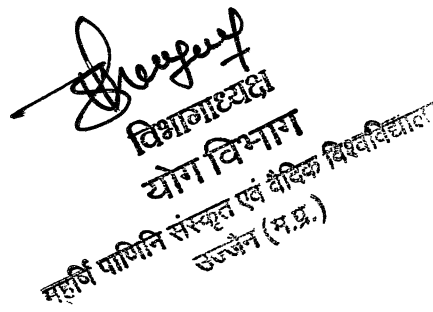 विभागाध्यक्ष
योग विभाग
महर्षि पाणिनि संस्कृत एवं वैदिक विश्वविद्याल
उज्जैन (म.प्र.)